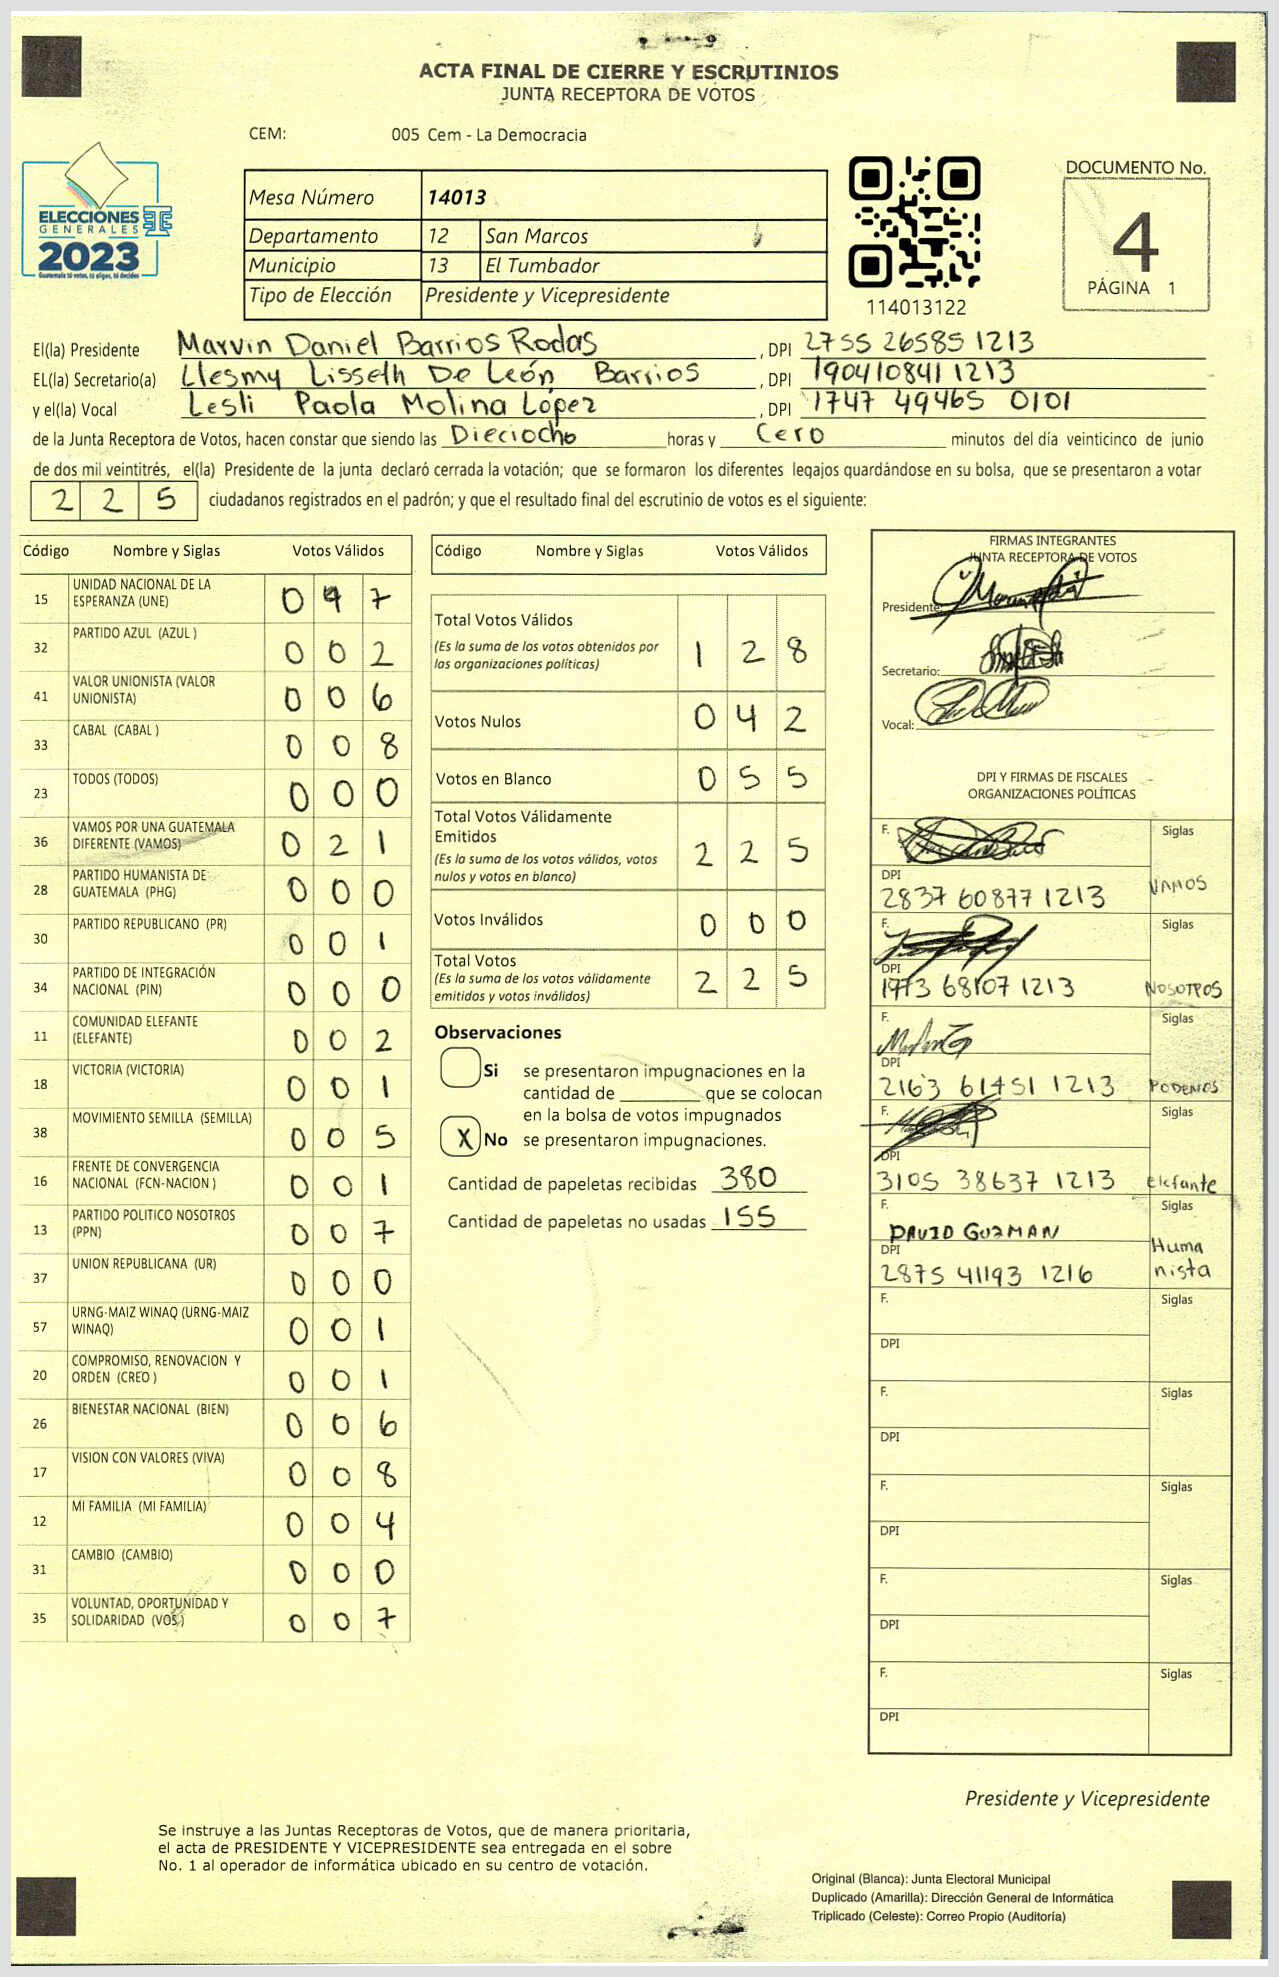 ACTA FINAL DE CIERRE Y ESCRUTINIOS
JUNTA RECEPTORA DE VOTOS
CEM: 005 Cem - La Democracia
ELECCIONES
GENERALES
2023
Guatemala tú votas, tú eliges, tú decides
Mesa Número 14013
Departamento 12 San Marcos
Municipio 13 El Tumbador
Tipo de Elección Presidente y Vicepresidente
114013122
DOCUMENTO No.
4
PÁGINA 1
El(la) Presidente Marvin Daniel Barrios Rodas , DPI 2755 26585 1213
EL(la) Secretario(a) Llesmy Lisseth De León Barrios , DPI 190410841 1213
y el(la) Vocal Lesli Paola Molina López , DPI 1747 49465 0101
de la Junta Receptora de Votos, hacen constar que siendo las Dieciocho horas y Cero minutos del día veinticinco de junio
de dos mil veintitrés, el(la) Presidente de la junta declaró cerrada la votación; que se formaron los diferentes legajos guardándose en su bolsa, que se presentaron a votar
225 ciudadanos registrados en el padrón; y que el resultado final del escrutinio de votos es el siguiente:
Código Nombre y Siglas Votos Válidos
15 UNIDAD NACIONAL DE LA ESPERANZA (UNE) 0 4 7
32 PARTIDO AZUL (AZUL ) 0 0 2
41 VALOR UNIONISTA (VALOR UNIONISTA) 0 0 6
33 CABAL (CABAL ) 0 0 8
23 TODOS (TODOS) 0 0 0
36 VAMOS POR UNA GUATEMALA DIFERENTE (VAMOS) 0 2 1
28 PARTIDO HUMANISTA DE GUATEMALA (PHG) 0 0 0
30 PARTIDO REPUBLICANO (PR) 0 0 1
34 PARTIDO DE INTEGRACIÓN NACIONAL (PIN) 0 0 0
11 COMUNIDAD ELEFANTE (ELEFANTE) 0 0 2
18 VICTORIA (VICTORIA) 0 0 1
38 MOVIMIENTO SEMILLA (SEMILLA) 0 0 5
16 FRENTE DE CONVERGENCIA NACIONAL (FCN-NACION ) 0 0 1
13 PARTIDO POLITICO NOSOTROS (PPN) 0 0 7
37 UNION REPUBLICANA (UR) 0 0 0
57 URNG-MAIZ WINAQ (URNG-MAIZ WINAQ) 0 0 1
20 COMPROMISO, RENOVACION Y ORDEN (CREO ) 0 0 1
26 BIENESTAR NACIONAL (BIEN) 0 0 6
17 VISION CON VALORES (VIVA) 0 0 8
12 MI FAMILIA (MI FAMILIA) 0 0 4
31 CAMBIO (CAMBIO) 0 0 0
35 VOLUNTAD, OPORTUNIDAD Y SOLIDARIDAD (VOS ) 0 0 7
Código Nombre y Siglas Votos Válidos
Total Votos Válidos 1 2 8
(Es la suma de los votos obtenidos por
las organizaciones políticas)
Votos Nulos 0 4 2
Votos en Blanco 0 5 5
Total Votos Válidamente
Emitidos 2 2 5
(Es la suma de los votos válidos, votos
nulos y votos en blanco)
Votos Inválidos 0 0 0
Total Votos 2 2 5
(Es la suma de los votos válidamente
emitidos y votos inválidos)
Observaciones
Si se presentaron impugnaciones en la
cantidad de ________ que se colocan
en la bolsa de votos impugnados
X No se presentaron impugnaciones.
Cantidad de papeletas recibidas 380
Cantidad de papeletas no usadas 155
FIRMAS INTEGRANTES
JUNTA RECEPTORA DE VOTOS
Presidente:
Secretario:
Vocal:
DPI Y FIRMAS DE FISCALES
ORGANIZACIONES POLÍTICAS
F. Siglas
DPI
2837 60877 1213 VAMOS
F. Siglas
DPI
1973 68107 1213 NOSOTROS
F. Siglas
DPI
2163 61451 1213 PODEMOS
F. Siglas
DPI
3105 38637 1213 Elefante
F. Siglas
DAVID GUZMAN
DPI Huma
2875 41193 1216 nista
F. Siglas
DPI
F. Siglas
DPI
F. Siglas
DPI
F. Siglas
DPI
F. Siglas
DPI
Presidente y Vicepresidente
Se instruye a las Juntas Receptoras de Votos, que de manera prioritaria,
el acta de PRESIDENTE Y VICEPRESIDENTE sea entregada en el sobre
No. 1 al operador de informática ubicado en su centro de votación.
Original (Blanca): Junta Electoral Municipal
Duplicado (Amarilla): Dirección General de Informática
Triplicado (Celeste): Correo Propio (Auditoría)